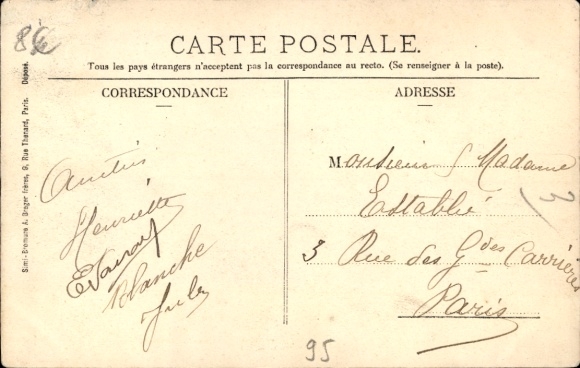 86
CARTE POSTALE.
Tous les pays étrangers n'acceptent pas la correspondance au recto. (Se renseigner à la poste).
CORRESPONDANCE
ADRESSE
Simi-Bromure A. Breger frères, 9, Rue Thénard, Paris. Déposé.
Amitiés
Henriette
Blanche
Jules
Monsieur & Madame
Establié
3 Rue des Gdes Carrières
Paris
3
95